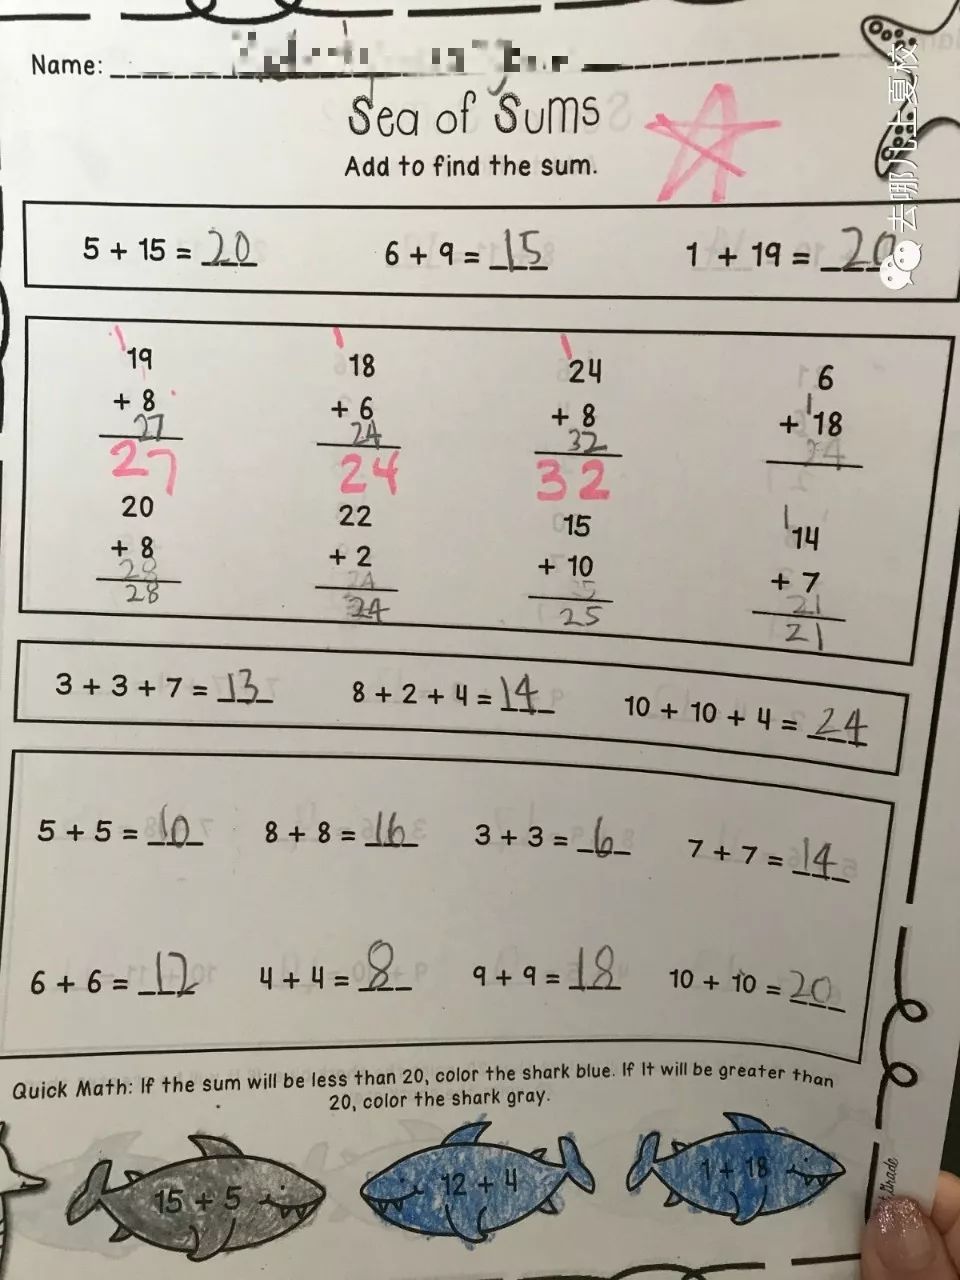 Name:
Sea of Sums
Add to find the sum.
去哪儿上夏校
5 + 15 = 20 6 + 9 = 15 1 + 19 = 20
1 1 1
19 18 24 6
1
+ 8 + 6 + 8 + 18
27 24 32 24
27 24 32
1
20 22 15 14
+ 8 + 2 + 10 + 7
28 24 25 21
28 24 25 21
3 + 3 + 7 = 13 8 + 2 + 4 = 14 10 + 10 + 4 = 24
5 + 5 = 10 8 + 8 = 16 3 + 3 = 6 7 + 7 = 14
6 + 6 = 12 4 + 4 = 8 9 + 9 = 18 10 + 10 = 20
Quick Math: If the sum will be less than 20, color the shark blue. If It will be greater than
20, color the shark gray.
15 + 5 12 + 4 1 + 18
Grade